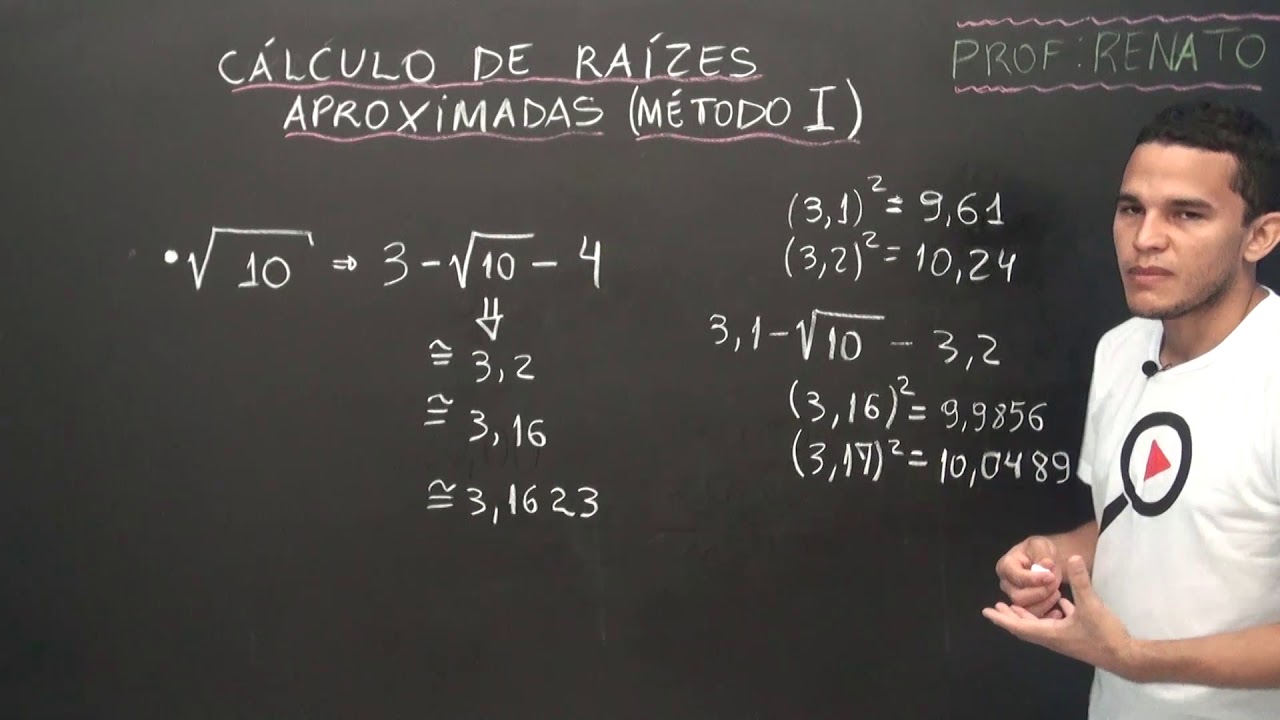 CÁLCULO DE RAÍZES
APROXIMADAS (MÉTODO I)
PROF: RENATO
•√10 ⇒ 3 - √10 - 4
⇓
≅ 3,2
≅ 3,16
≅ 3,1623
(3,1)² = 9,61
(3,2)² = 10,24
3,1 - √10 - 3,2
(3,16)² = 9,9856
(3,17)² = 10,0489